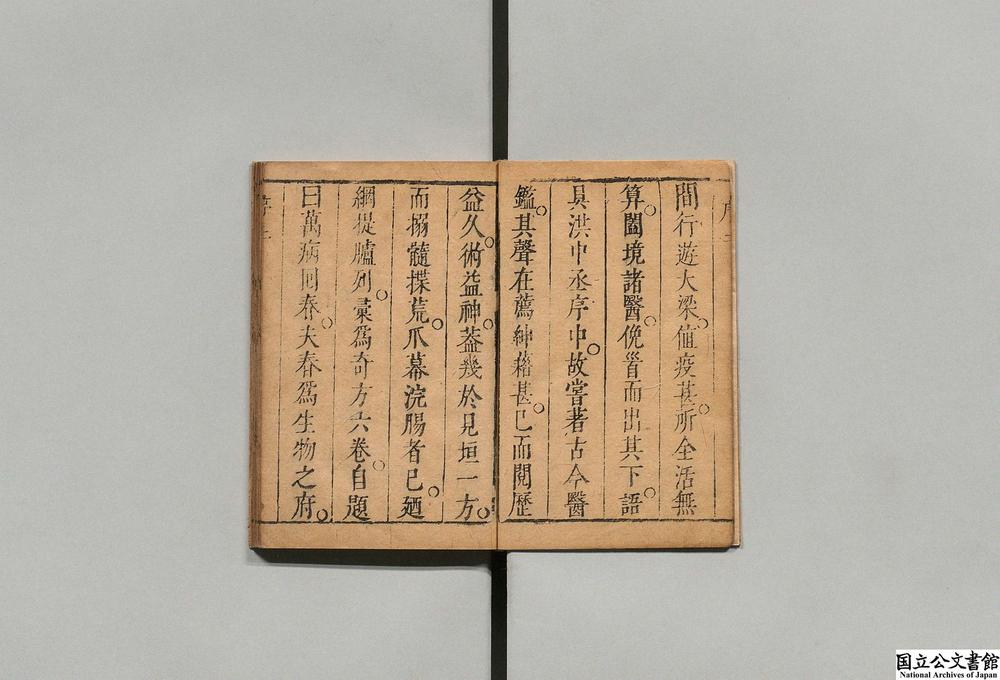 間行遊大梁値疫甚所全活無
算闔境諸醫俛首而出其下語
具洪中丞序中故嘗著古今醫
鑑其聲在薦紳藉甚已而閱歷
益久術益神蓋幾於見垣一方
而搦髓揲荒爪幕浣腸者已廼
綱提臚列彙爲奇方六卷自題
曰萬病囘春夫春爲生物之府
国立公文書館
National Archives of Japan